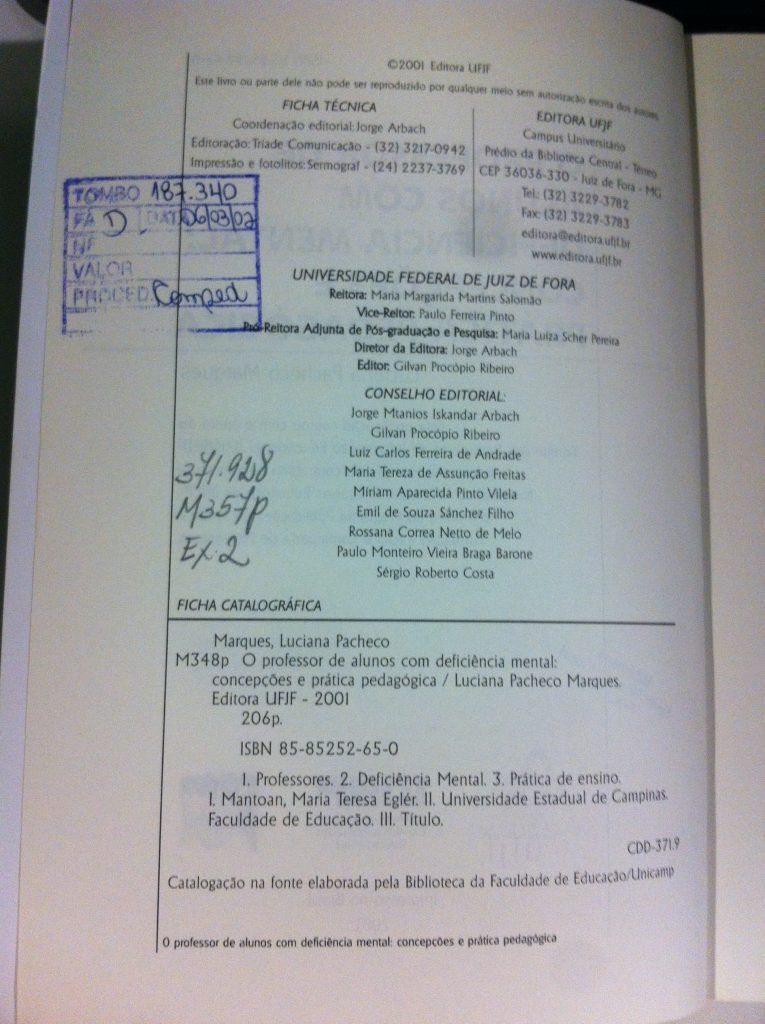 ©2001 Editora UFJF
Este livro ou parte dele não pode ser reproduzido por qualquer meio sem autorização escrita dos autores
FICHA TÉCNICA
Coordenação editorial: Jorge Arbach
Editoração: Tríade Comunicação - (32) 3217-0942
Impressão e fotolitos: Sermograf - (24) 2237-3769
EDITORA UFJF
Campus Universitário
Prédio da Biblioteca Central - Térreo
CEP 36036-330 - Juiz de Fora - MG
Tel.: (32) 3229-3782
Fax: (32) 3229-3783
editora@editora.ufjf.br
www.editora.ufjf.br
TOMBO 187.340
D. DATA 06/03/02
NF
VALOR
PROCED. Comped
UNIVERSIDADE FEDERAL DE JUIZ DE FORA
Reitora: Maria Margarida Martins Salomão
Vice-Reitor: Paulo Ferreira Pinto
Pró-Reitora Adjunta de Pós-graduação e Pesquisa: Maria Luíza Scher Pereira
Diretor da Editora: Jorge Arbach
Editor: Gilvan Procópio Ribeiro
CONSELHO EDITORIAL:
Jorge Mtanios Iskandar Arbach
Gilvan Procópio Ribeiro
Luiz Carlos Ferreira de Andrade
Maria Tereza de Assunção Freitas
Míriam Aparecida Pinto Vilela
Emil de Souza Sánchez Filho
Rossana Correa Netto de Melo
Paulo Monteiro Vieira Braga Barone
Sérgio Roberto Costa
371.928
M357p
Ex.2
FICHA CATALOGRÁFICA
Marques, Luciana Pacheco
M348p O professor de alunos com deficiência mental:
concepções e prática pedagógica / Luciana Pacheco Marques.
Editora UFJF - 2001
206p.
ISBN 85-85252-65-0
1. Professores. 2. Deficiência Mental. 3. Prática de ensino.
I. Mantoan, Maria Teresa Eglér. II. Universidade Estadual de Campinas.
Faculdade de Educação. III. Título.
CDD-371.9
Catalogação na fonte elaborada pela Biblioteca da Faculdade de Educação/Unicamp
O professor de alunos com deficiência mental: concepções e prática pedagógica